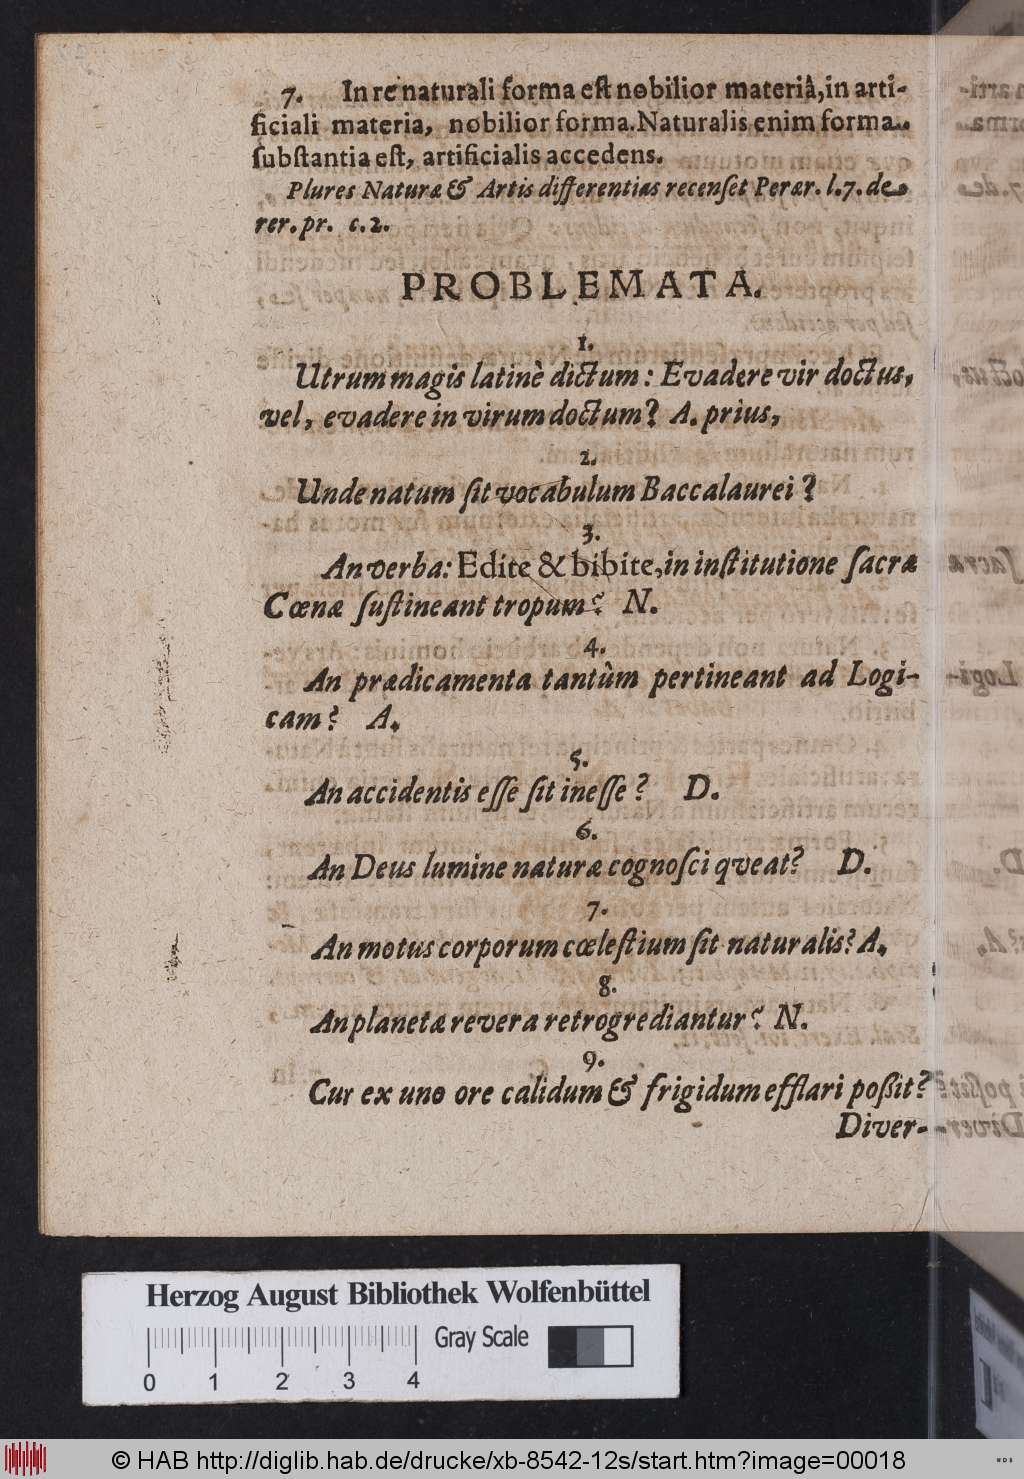 7. In re naturali forma eſt nobilior materiâ, in arti-
ficiali materia, nobilior forma. Naturalis enim forma
ſubſtantia eſt, artificialis accedens.
Plures Naturæ & Artis differentias recenſet Perær. l. 7. de
rer. pr. c. 2.
PROBLEMATA.
1.
Utrum magis latinè dictum: Evadere vir doctus,
vel, evadere in virum doctum? A. prius,
2.
Unde natum ſit vocabulum Baccalaurei?
3.
An verba: Edite & bibite, in inſtitutione ſacræ
Cœnæ ſuſtineant tropum? N.
4.
An prædicamenta tantùm pertineant ad Logi-
cam? A.
5.
An accidentis eſſe ſit ineſſe? D.
6.
An Deus lumine naturæ cognoſci qveat? D.
7.
An motus corporum cœleſtium ſit naturalis? A.
8.
An planetæ revera retrogrediantur? N.
9.
Cur ex uno ore calidum & frigidum efflari poßit?
Diver-
Herzog August Bibliothek Wolfenbüttel
Gray Scale
0 1 2 3 4
© HAB http://diglib.hab.de/drucke/xb-8542-12s/start.htm?image=00018